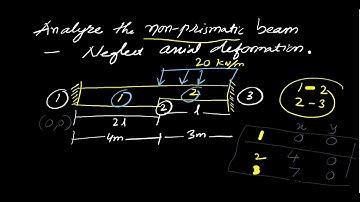 Analyze the non-prismatic beam
- Neglect axial deformation.
20 kN/m
1 1 2 2 3
2I I
(0,0)
4m 3m
1 - 2
2 - 3
x y
1 0 0
2 4 0
3 7 0